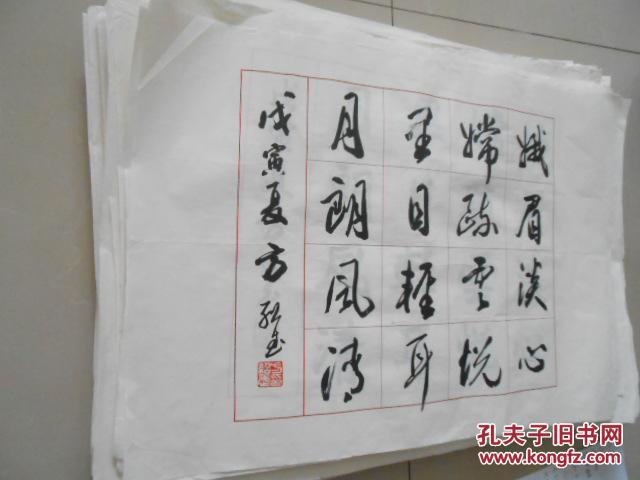 娥眉淡心
嫦疏雲悦
星目輕耳
月朗風清
戊寅夏方
孔夫子旧书网
www.kongfz.com